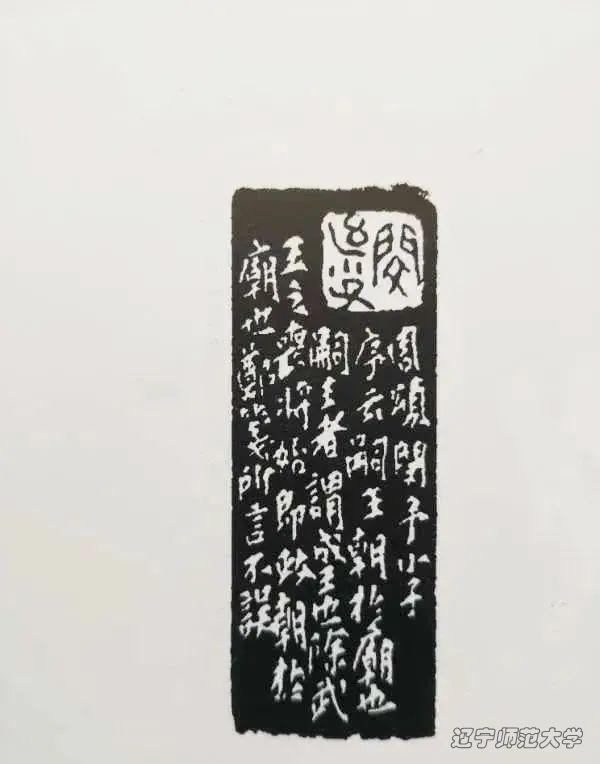 閔
周頌閔予小子
序云嗣王朝於廟也
嗣王者謂成王也除武
王之喪將始即政朝於
廟也鄭箋所言不誤
辽宁师范大学